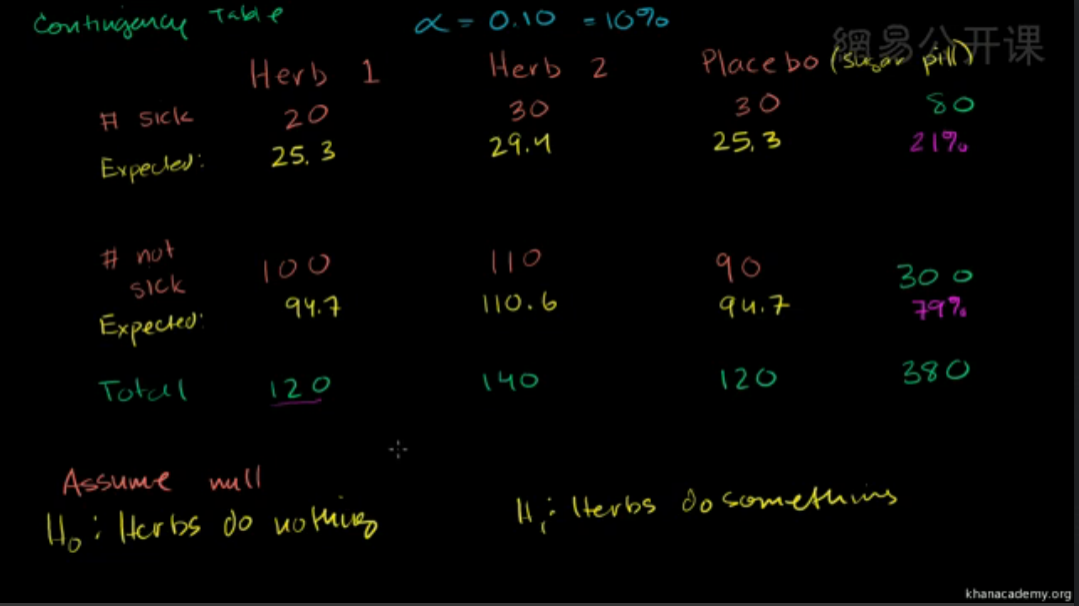 Contingency Table α = 0.10 = 10%
網易公开课
Herb 1 Herb 2 Placebo (sugar pill)
# sick 20 30 30 80
Expected: 25.3 29.4 25.3 21%
# not
sick 100 110 90 300
Expected: 94.7 110.6 94.7 79%
Total 120 140 120 380
Assume null
H₀: Herbs do nothing H₁: Herbs do something
khanacademy.org